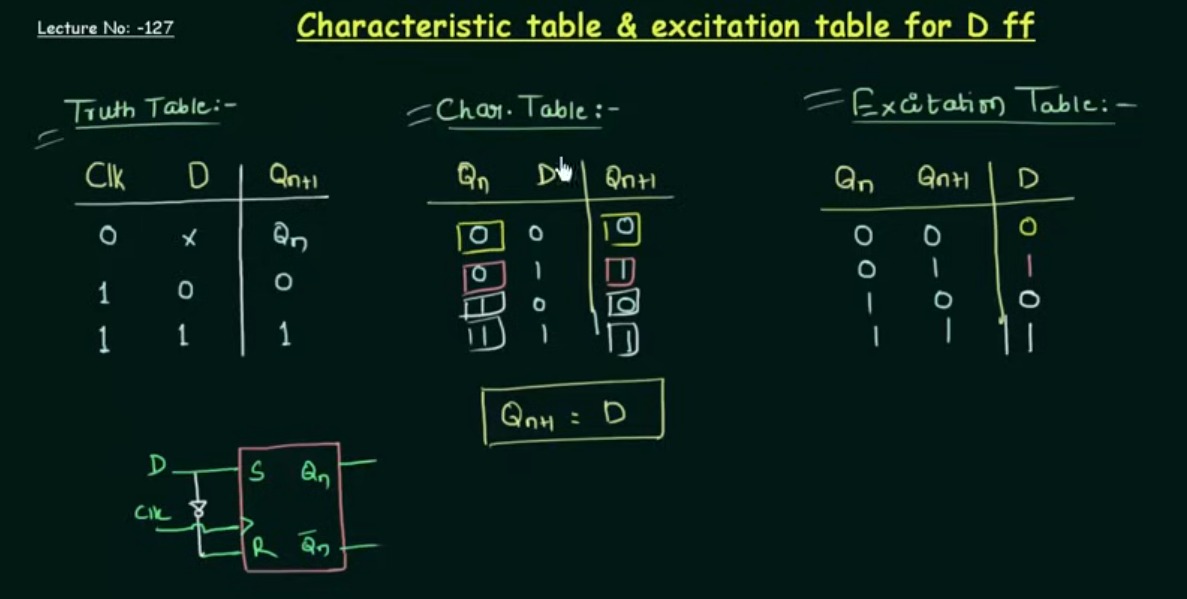 Lecture No: -127
Characteristic table & excitation table for D ff
Truth Table:-
Clk D Qn+1
0 x Qn
1 0 0
1 1 1
Char. Table:-
Qn D Qn+1
0 0 0
0 1 1
1 0 0
1 1 1
Qn+1 = D
Excitation Table:-
Qn Qn+1 D
0 0 0
0 1 1
1 0 0
1 1 1
D S Qn
Clk
R Q̅n